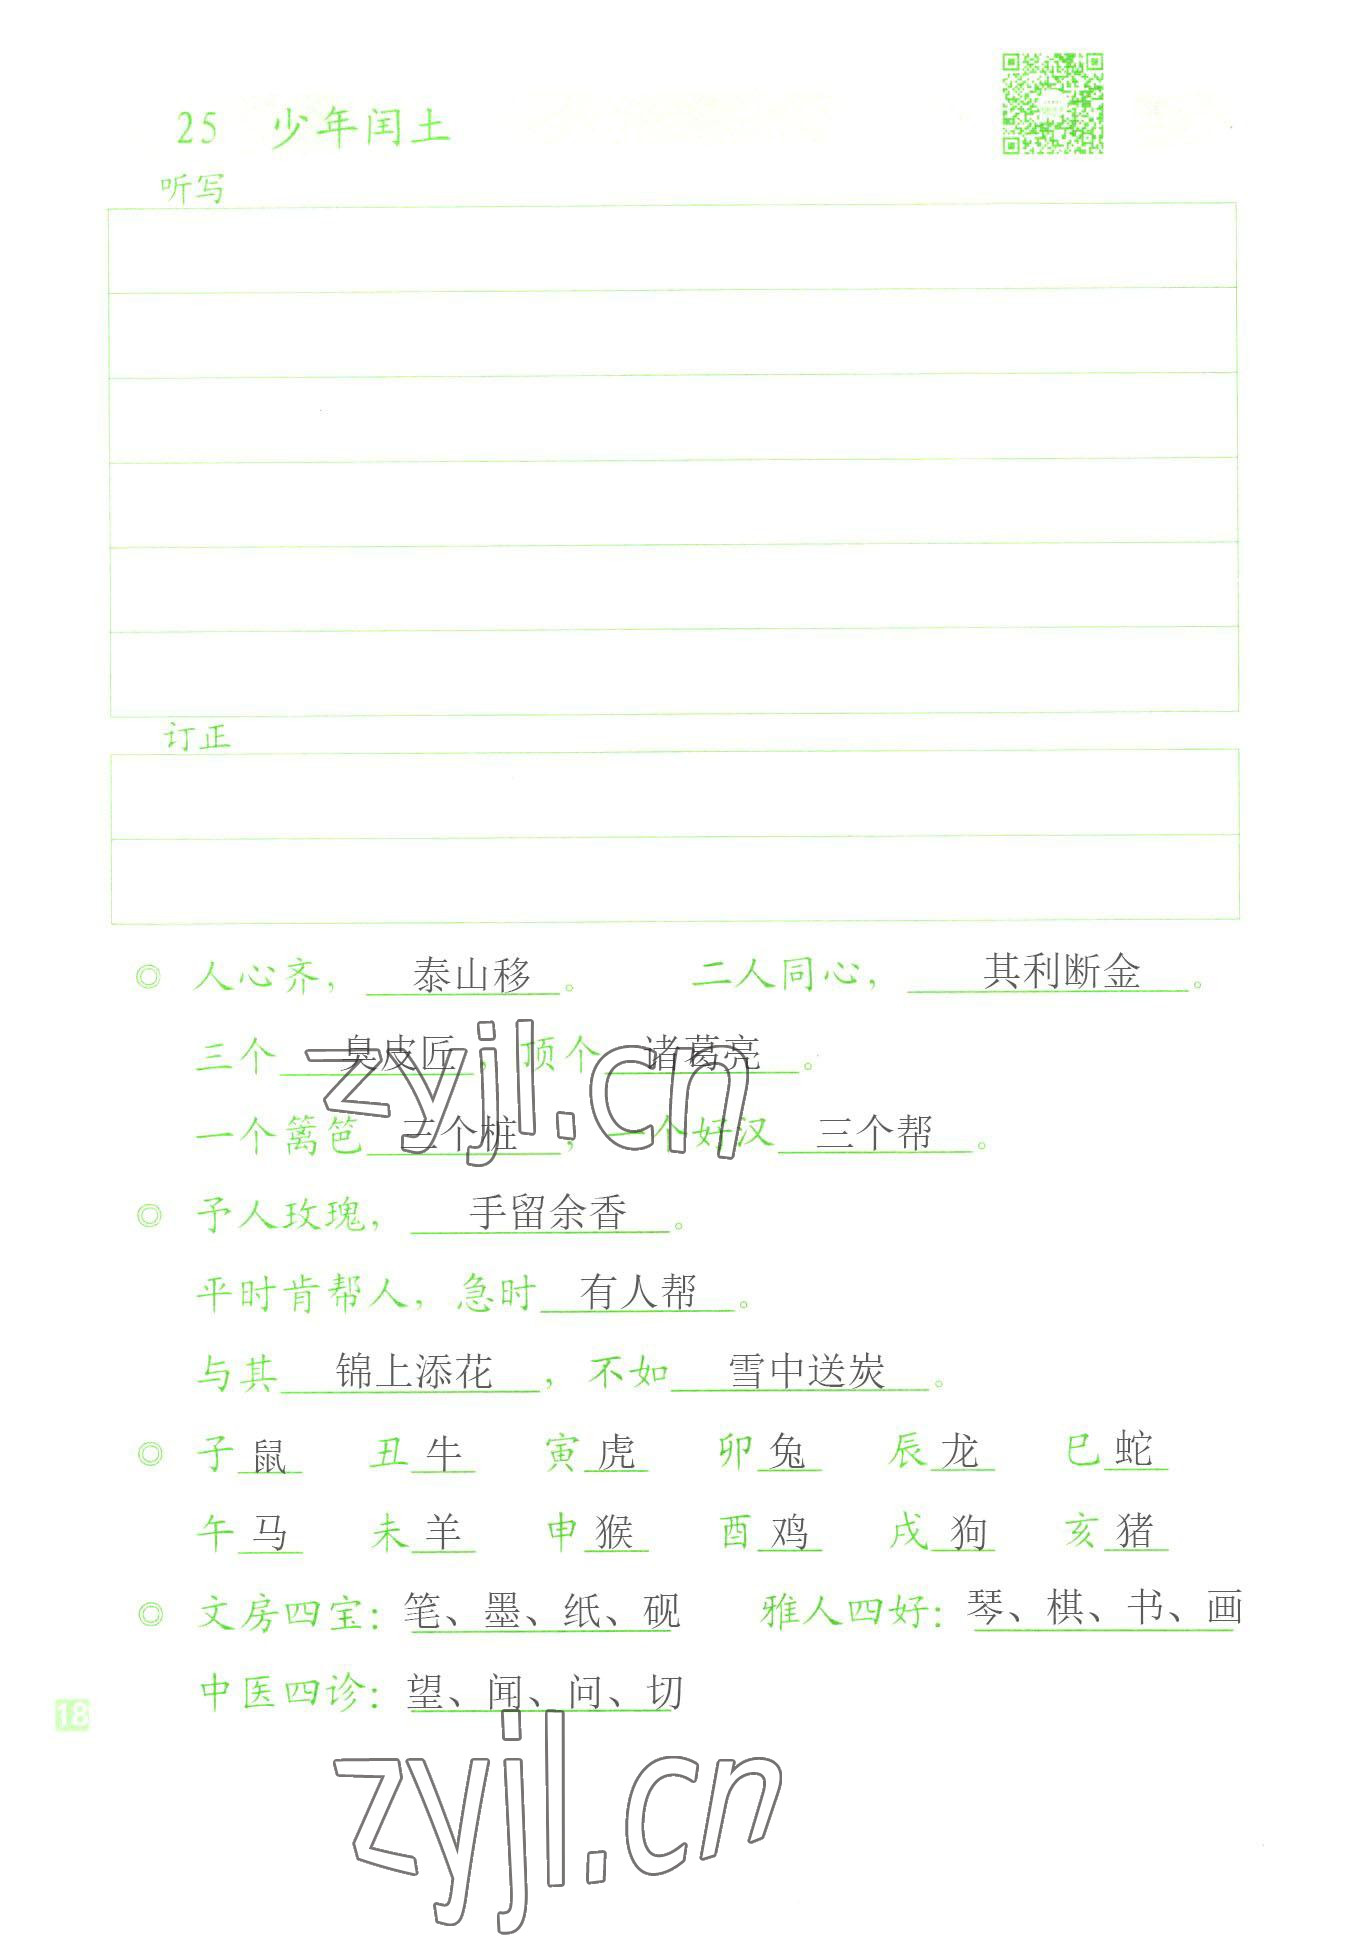 25 少年闰土
听写
订正
◎ 人心齐，泰山移。 二人同心，其利断金。
三个臭皮匠，顶个诸葛亮。
一个篱笆三个桩，一个好汉三个帮。
◎ 予人玫瑰，手留余香。
平时肯帮人，急时有人帮。
与其锦上添花，不如雪中送炭。
◎ 子鼠 丑牛 寅虎 卯兔 辰龙 巳蛇
午马 未羊 申猴 酉鸡 戌狗 亥猪
◎ 文房四宝：笔、墨、纸、砚 雅人四好：琴、棋、书、画
中医四诊：望、闻、问、切
18
zyjl.cn
zyjl.cn